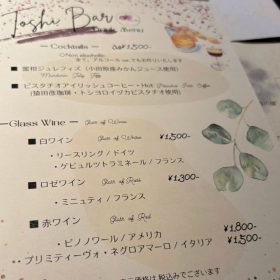 Toshi Bar
Drink Menu
— Cocktails — 各¥1,500-
Non alcoholic
全て、アルコール ver.でもお作りいたします
蜜柑ジュレフィズ（小田原産みかんジュース使用）
Mandarin Jelly Fizz
ピスタチオアイリッシュコーヒー・Hot Pistachio Irish Coffee
（猿田彦珈琲・トシヨロイヅカピスタチオ使用）
— Glass Wine — Glass of Wine
白ワイン Glass of White ¥1,500-
・リースリング / ドイツ
・ゲビュルツトラミネール / フランス
ロゼワイン Glass of Rose ¥1,300-
・ミニュティ / フランス
赤ワイン Glass of Red
・ピノノワール / アメリカ ¥1,800-
・プリミティーヴォ・ネグロアマーロ / イタリア ¥1,500-
価格は 税込みでございます